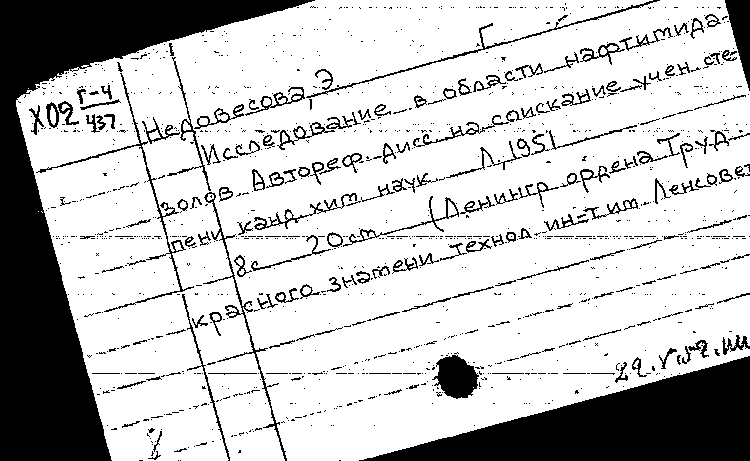 Г
Х02 Г-4
437
Недовесова, Э
Исследование в области нафтимида-
золов Автореф. дисс. на соискание учен сте-
пени канд. хим. наук Л, 1951
8с 20см (Ленингр ордена Труд
красного знамени технол ин-т им. Ленсовет
8